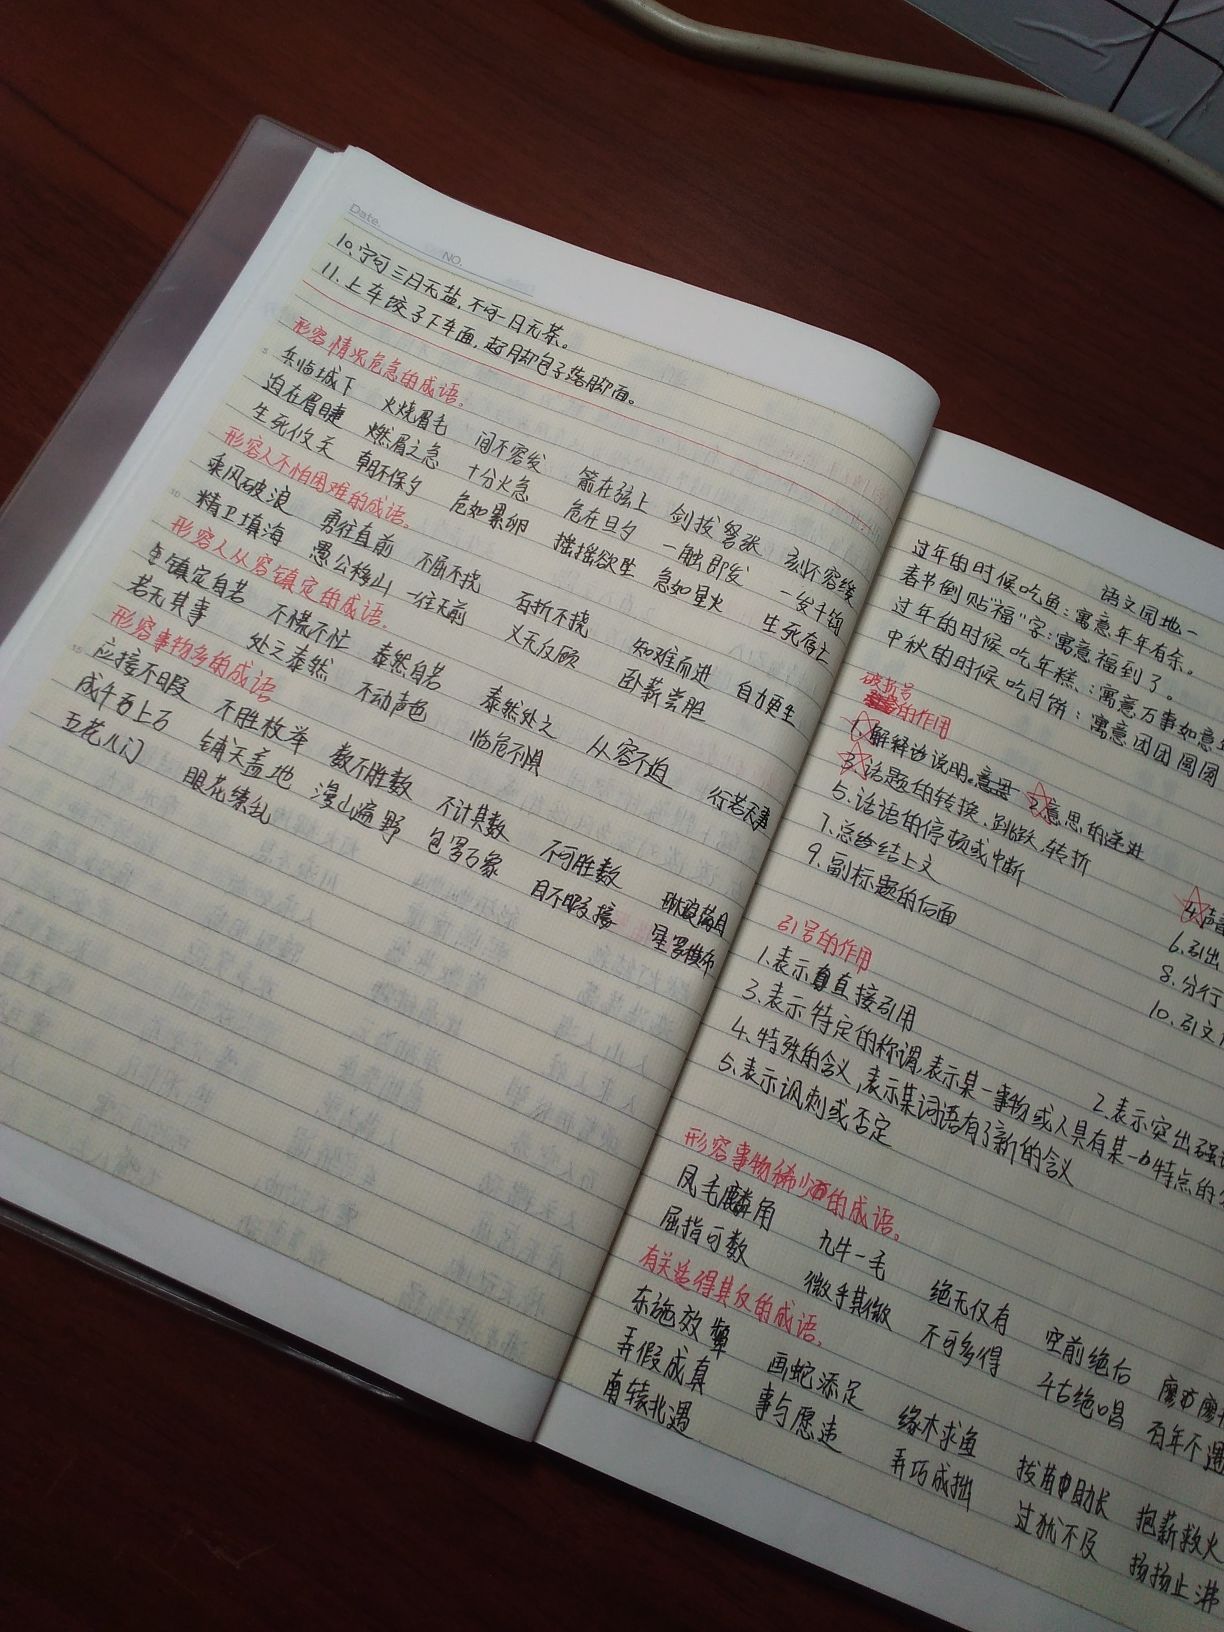 Date.
NO.
10、宁可三日无盐，不可一日无茶。
11、上车饺子下车面，起脚包子落脚面。
形容情况危急的成语。
兵临城下 火烧眉毛 间不容发 箭在弦上 剑拔弩张 刻不容缓
迫在眉睫 燃眉之急 十分火急 危在旦夕 一触即发 一发千钧
生死攸关 朝不保夕 危如累卵 摇摇欲坠 急如星火 生死存亡
形容人不怕困难的成语。
乘风破浪 勇往直前 不屈不挠 百折不挠 知难而进 自力更生
精卫填海 愚公移山 一往无前 义无反顾 卧薪尝胆
形容人从容镇定的成语。
镇定自若 不慌不忙 泰然自若 泰然处之 从容不迫 行若无事
若无其事 处之泰然 不动声色 临危不惧
形容事物多的成语
应接不暇 不胜枚举 数不胜数 不计其数 不可胜数 琳琅满目
成千上万 铺天盖地 漫山遍野 包罗万象 目不暇接 星罗棋布
五花八门 眼花缭乱
语文园地一
过年的时候吃鱼：寓意年年有余。
春节倒贴"福"字：寓意福到了。
过年的时候吃年糕：寓意万事如意
中秋的时候吃月饼：寓意团团圆圆
破折号的作用
1、解释说明。 2、意思的递进
3、话题的转换、跳跃、转折 4、声音
5、话语的停顿或中断 6、引出
7、总结上文 8、分行
9、副标题的后面 10、引文
引号的作用
1、表示直接引用 2、表示突出强调
3、表示特定的称谓，表示某一事物或人具有某一特点的
4、特殊的含义，表示某词语有了新的含义
5、表示讽刺或否定
形容事物稀少的成语。
凤毛麟角 九牛一毛 绝无仅有 空前绝后
屈指可数 微乎其微 不可多得 千古绝唱 百年不遇
有关适得其反的成语。
东施效颦 画蛇添足 缘木求鱼 拔苗助长 抱薪救火
弄假成真 事与愿违 弄巧成拙 过犹不及 扬扬止沸
南辕北遇